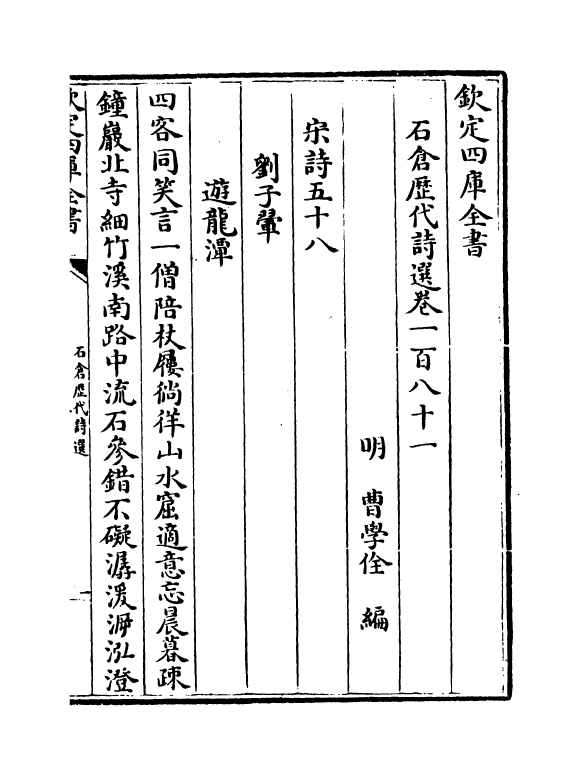 欽定四庫全書
石倉歷代詩選卷一百八十一
明 曹學佺 編
宋詩五十八
劉子翬
遊龍潭
四客同笑言一僧陪杖屨徜徉山水窟適意忘晨暮疎
鐘巖北寺細竹溪南路中流石參錯不礙潺湲㴑泓澄
欽定四庫全書
石倉歷代詩選
一